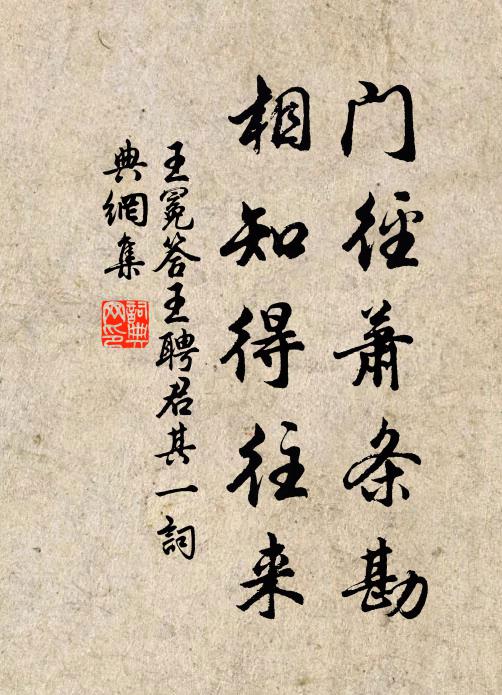 门径萧条勘
相知得往来
王冕答王聘君其一詞
典網集
詞典网印